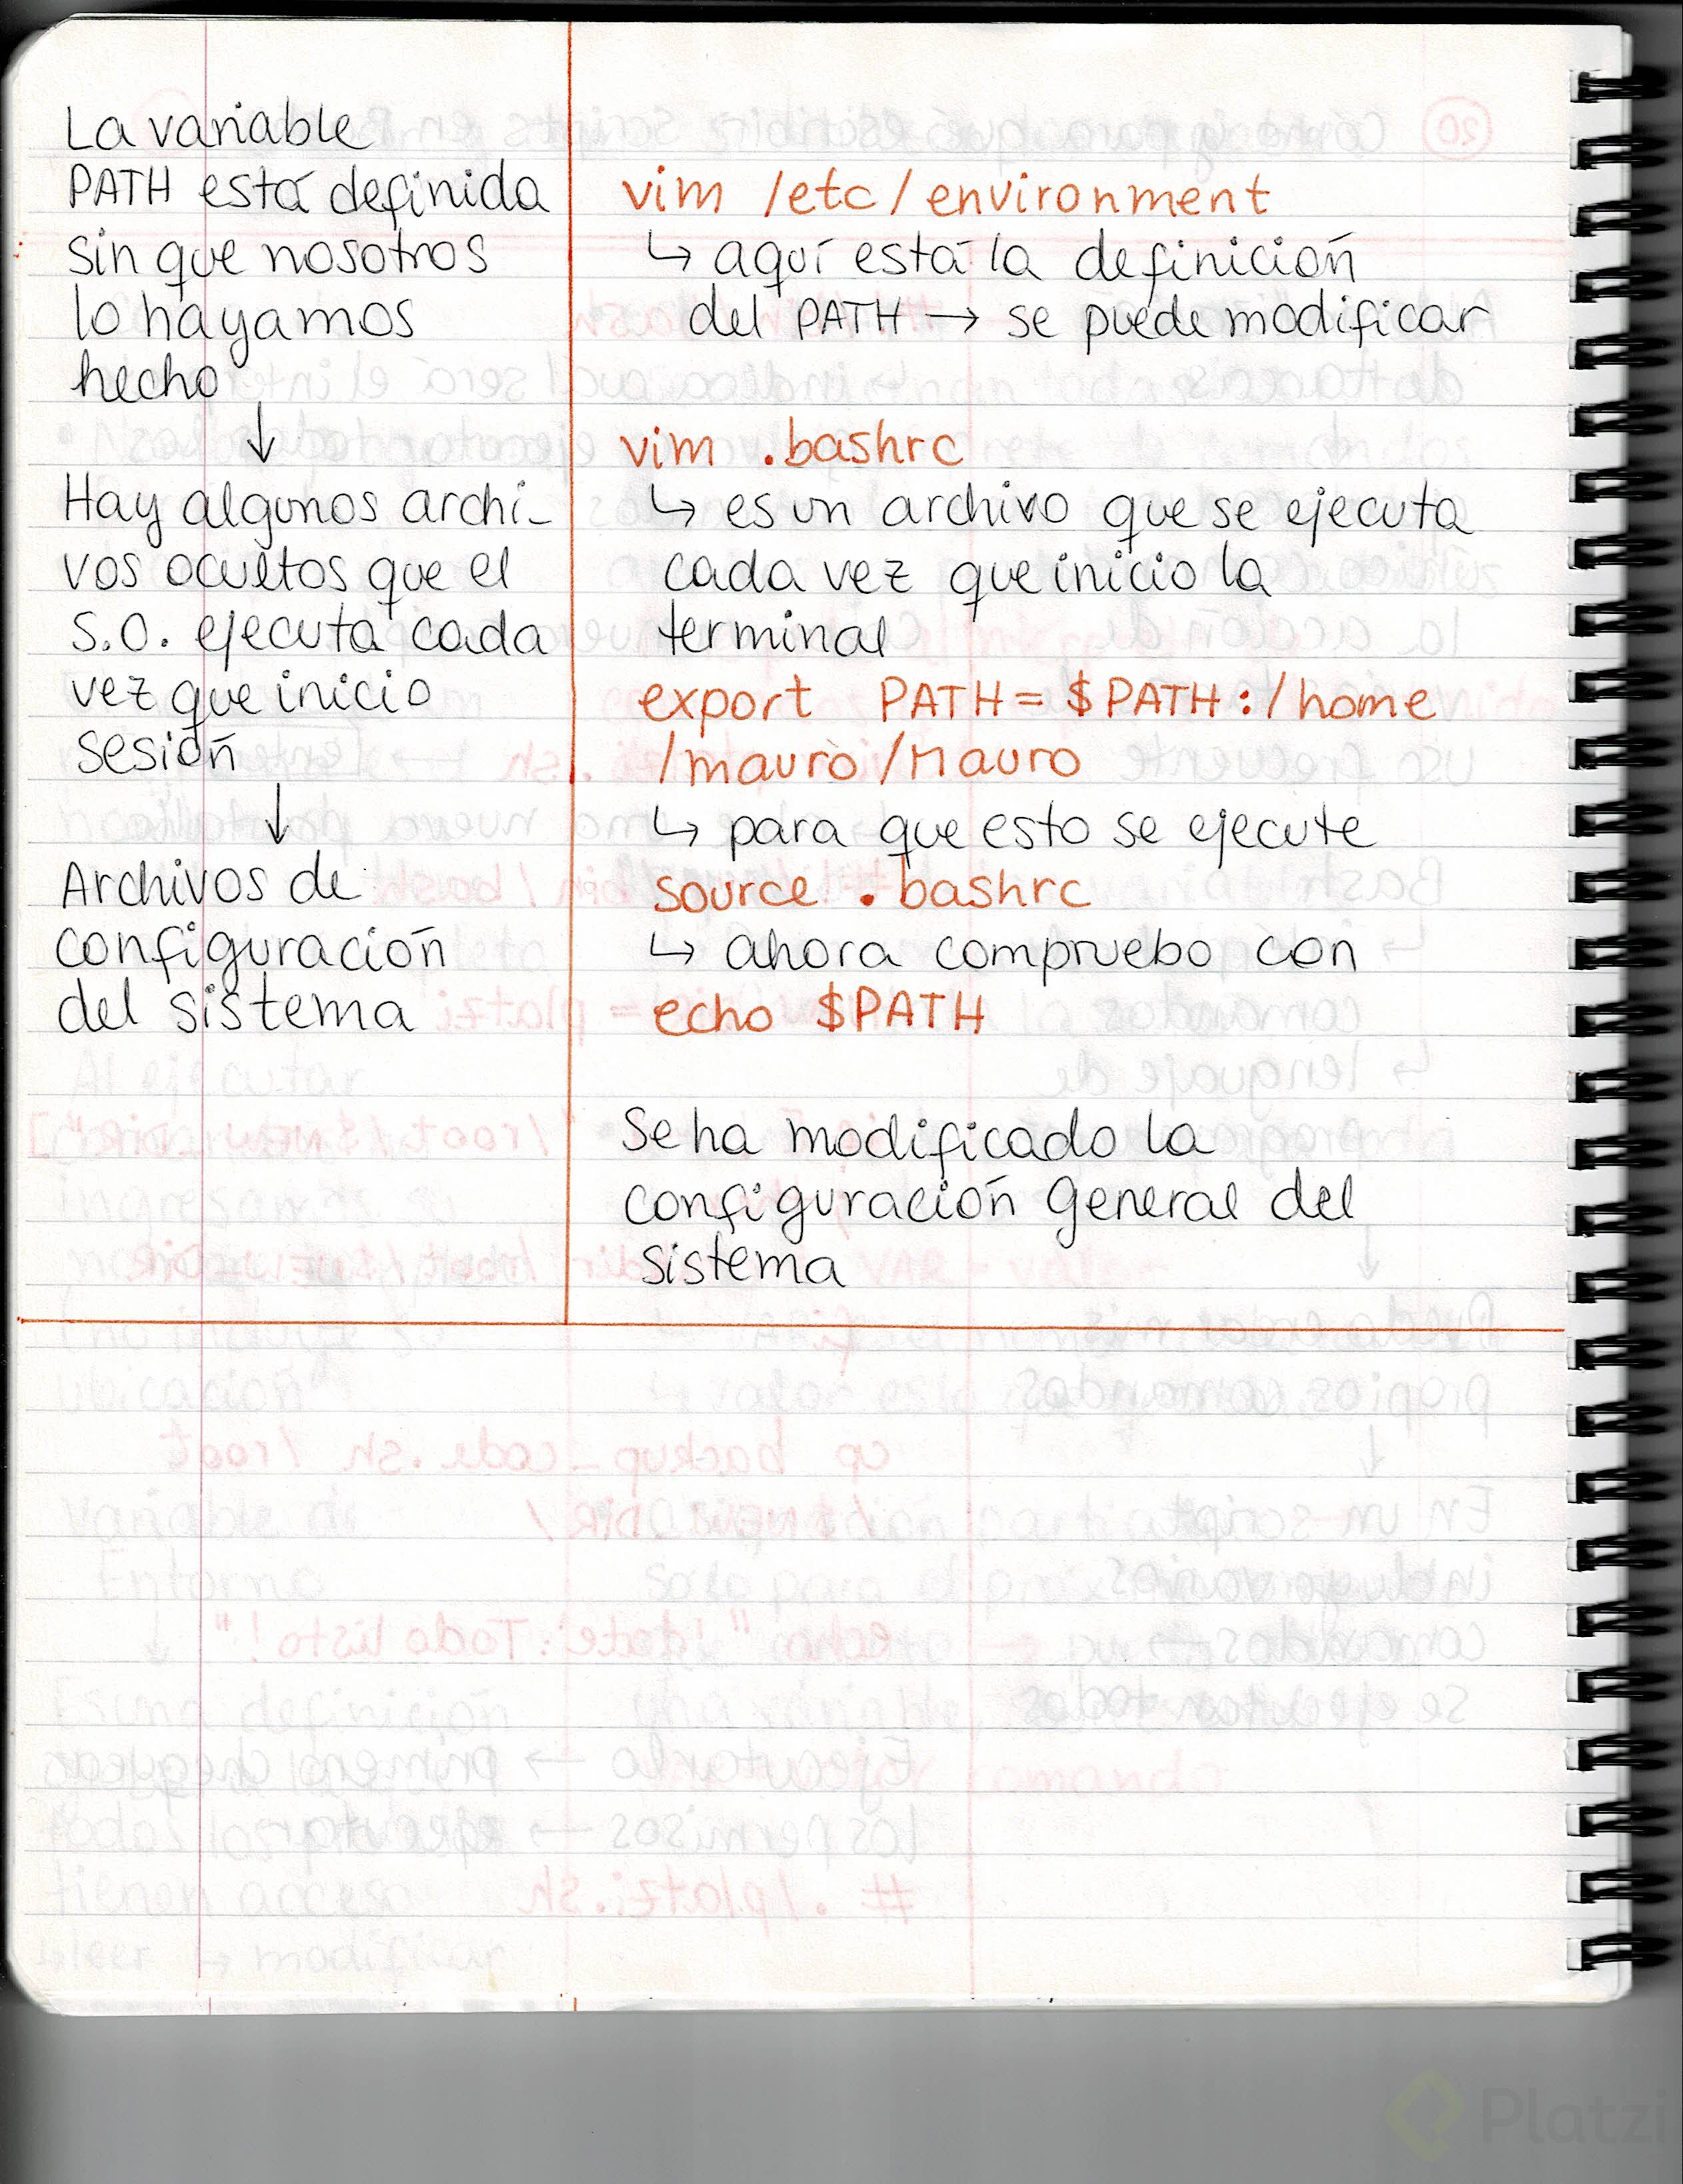 La variable
PATH está definida
sin que nosotros
lo hayamos
hecho
↓
Hay algunos archi-
vos ocultos que el
S.O. ejecuta cada
vez que inicio
sesión
↓
Archivos de
configuración
del sistema
vim /etc/environment
↳ aquí está la definición
del PATH → se puede modificar
vim .bashrc
↳ es un archivo que se ejecuta
cada vez que inicio la
terminal
export PATH = $PATH:/home
/mauro/Mauro
↳ para que esto se ejecute
source .bashrc
↳ ahora compruebo con
echo $PATH
Se ha modificado la
configuración general del
sistema
Platzi